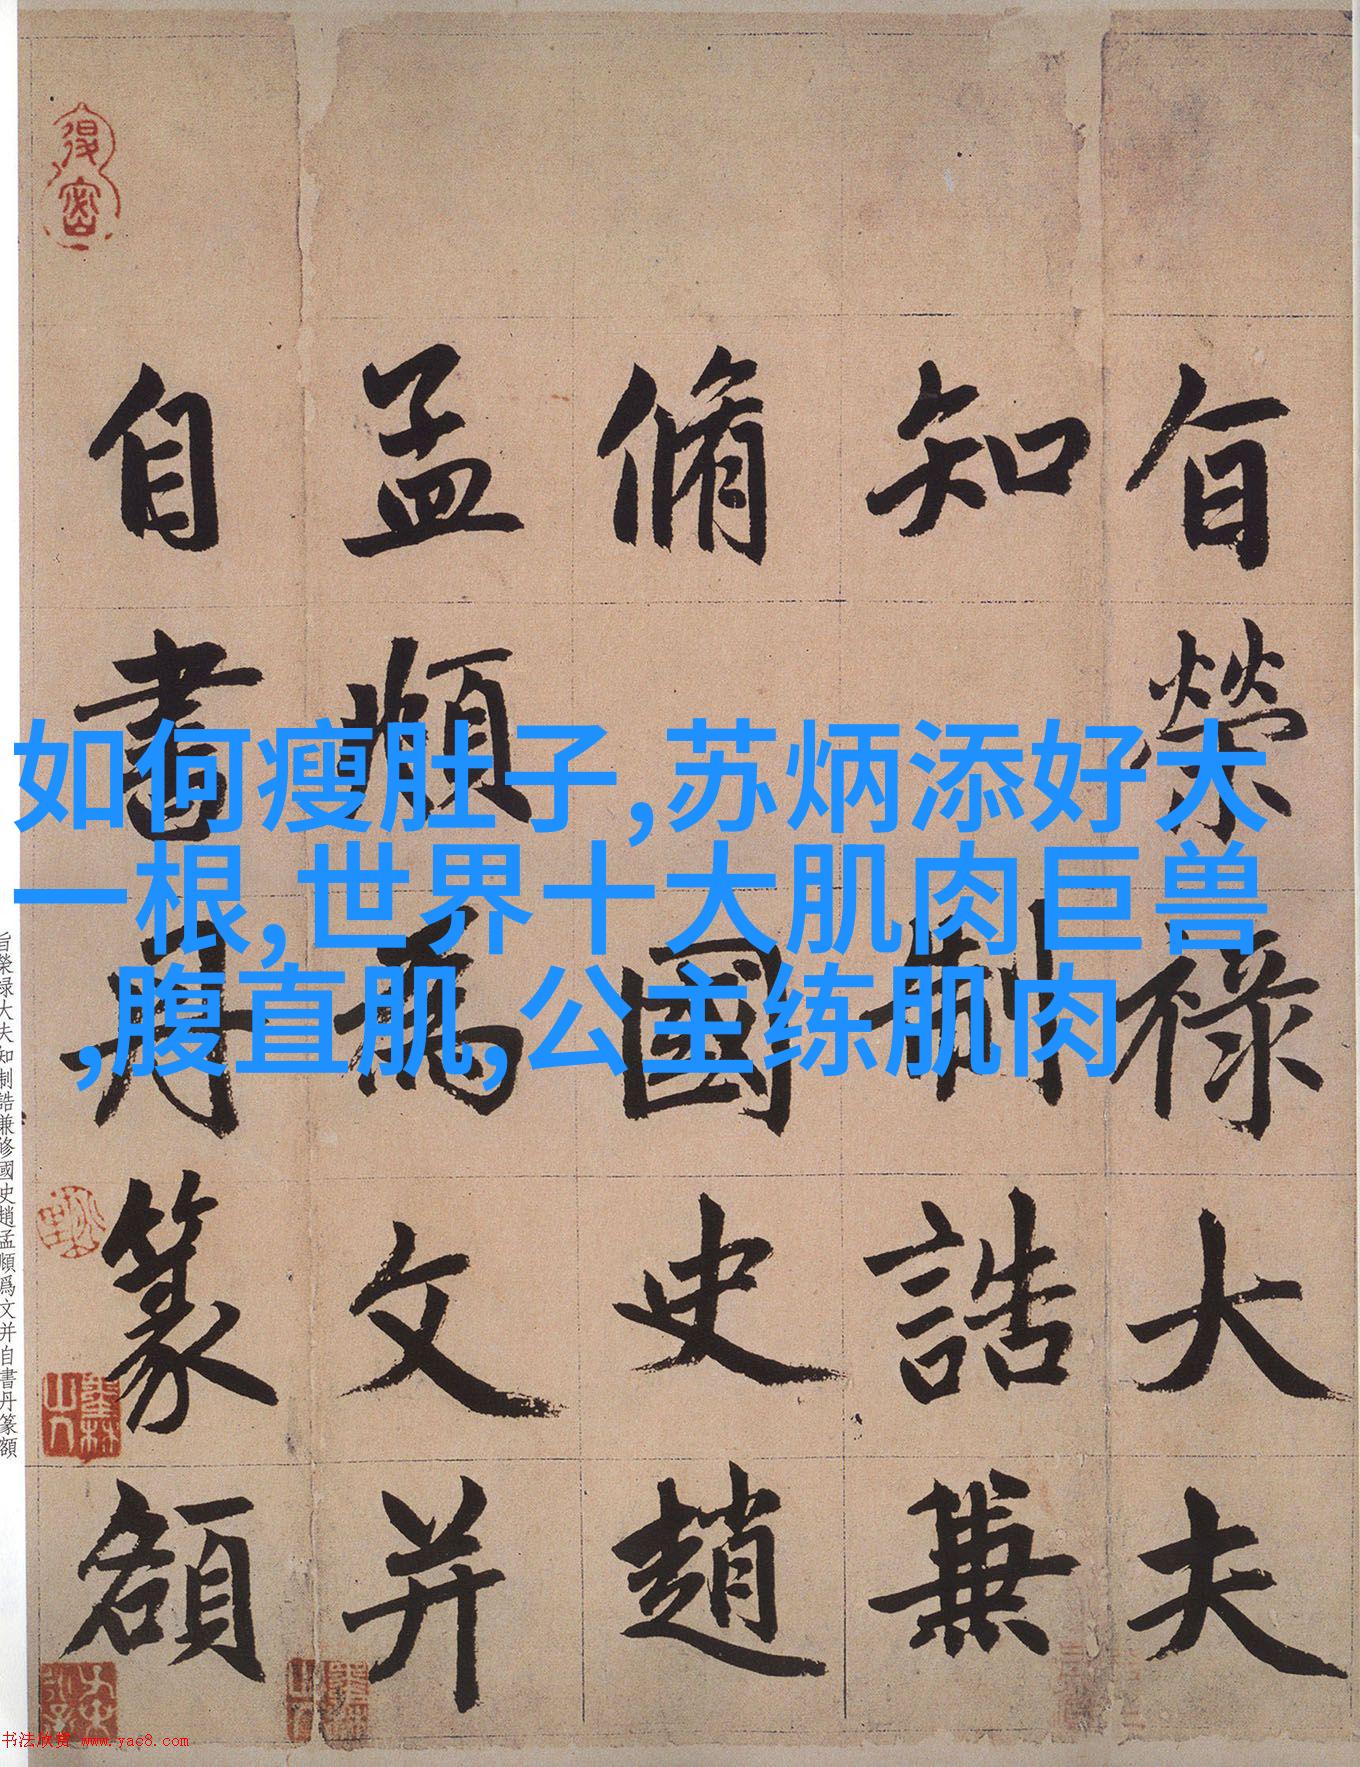 旨榮祿大夫
知制誥兼
脩國史趙
孟頫為文并
自書丹篆額
如何瘦肚子,苏炳添好大
一根,世界十大肌肉巨兽
,腹直肌,公主练肌肉
旨榮禄大夫知制誥兼修國史趙孟頫爲文并自書丹篆額
书法欣赏 www.yac8.com